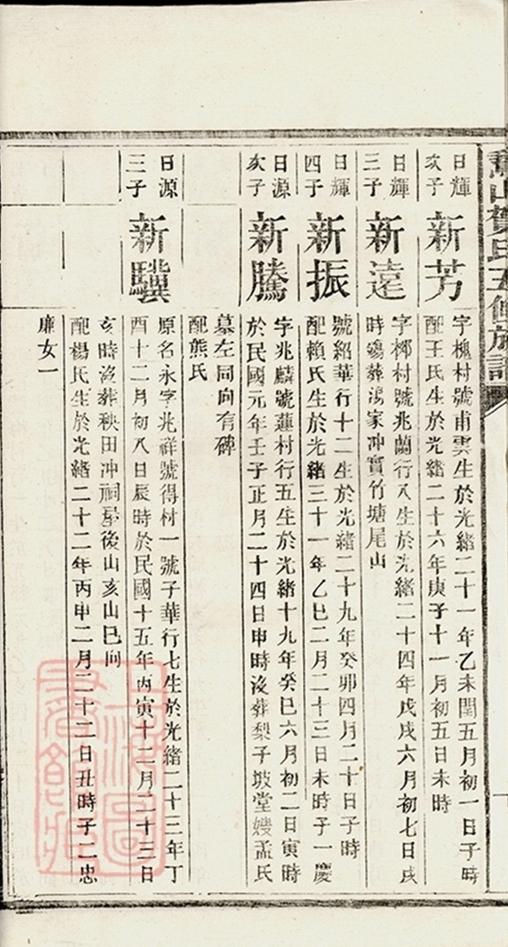 山賀氏五修族譜
日輝
次子
新芳
字槐村號甫雲生於光緒二十一年乙未閏五月初一日子時
配王氏生於光緒二十六年庚子十一月初五日未時
日輝
三子
新遠
字梛村號兆蘭行八生於光緒二十四年戊戌六月初七日戌
時殤葬湯家冲實竹塘尾山
日輝
四子
新振
號紹華行十二生於光緒二十九年癸卯四月二十日子時
配賴氏生於光緒三十一年乙巳二月二十三日未時子一慶
日源
次子
新騰
字兆麟號蓮村行五生於光緒十九年癸巳六月初二日寅時
於民國元年壬子正月二十四日申時沒葬梨子坡堂嫂孟氏
墓左同向有碑
配熊氏
日源
三子
新驥
原名永字兆祥號得村一號子華行七生於光緒二十三年丁
酉十二月初八日辰時於民國十五年丙寅十二月二十三日
亥時沒葬秧田冲祠屋後山亥山巳向
配楊氏生於光緒二十二年丙申二月二十二日丑時子二忠
廉女一